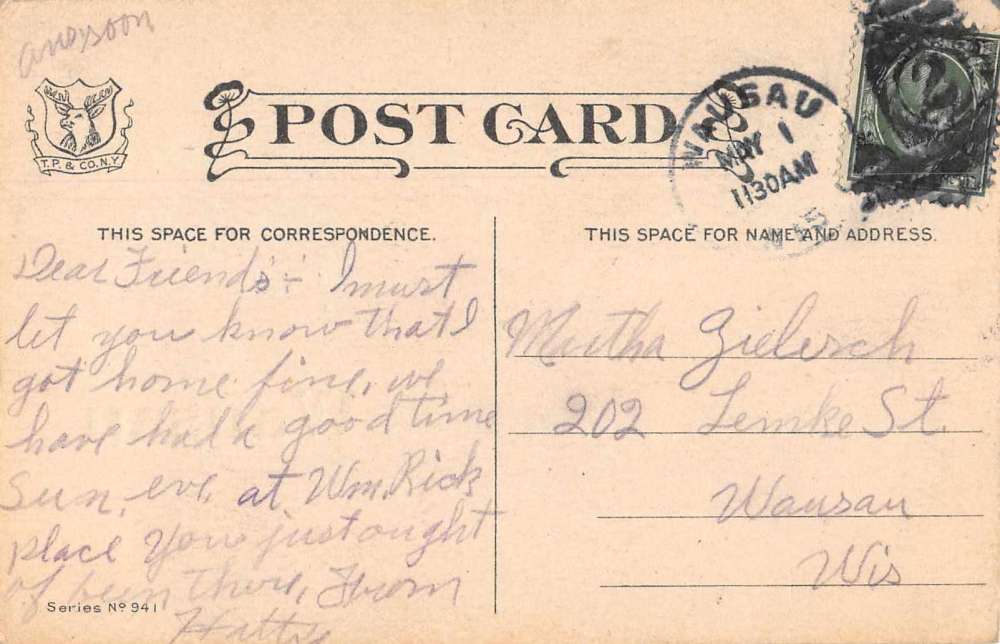 T.P. & CO. N.Y.
POST CARD
WAUSAU
MAY 1
1130AM
WIS.
2
THIS SPACE FOR CORRESPONDENCE.
Dear Friends:- I must
let you know that I
got home fine, we
have had a good time
Sun, eve, at Wm. Rick
place you just ought
of been there, From
Hattie
Series Nº 941
THIS SPACE FOR NAME AND ADDRESS.
Martha Zielesch
202 Lemke St.
Wausau
Wis